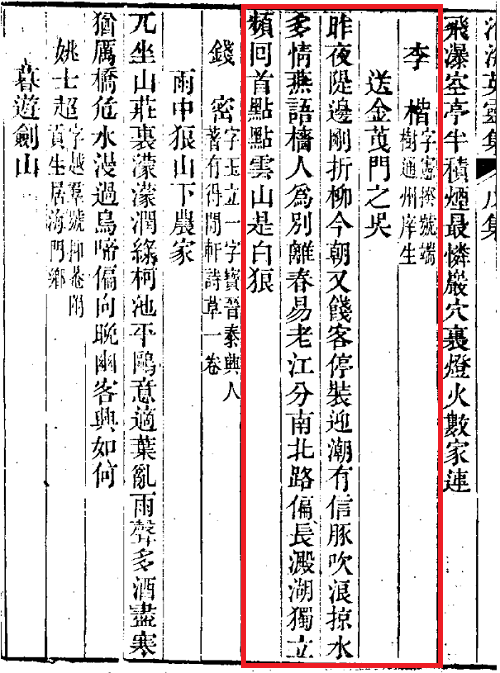 淮海英靈集　戊集
飛瀑空亭半積煙最憐巖穴裏燈火數家連
李楷字憲揆號端樹通州庠生
送金茂門之吳
昨夜隄邊剛折柳今朝又餞客停裝迎潮有信豚吹浪掠水
多情燕語檣人爲別離春易老江分南北路偏長澱湖獨立
頻回首點點雲山是白狼
錢密字玉立一字寳晉泰興人著有得閒軒詩草一卷
雨中狼山下農家
兀坐山莊裏濛濛潤綠柯池平鷗意適葉亂雨聲多酒盡寒
猶厲橋危水漫過烏啼偏向晚幽客興如何
姚士超字越羣號抑菴附貢生居海門鄉
暮遊劍山